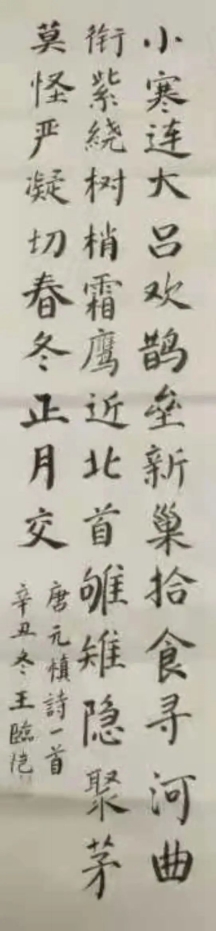 小寒连大吕欢鹊垒新巢拾食寻河曲
衔紫绕树梢霜鹰近北首雊雉隐聚茅
莫怪严凝切春冬正月交
唐元慎詩一首
辛丑冬王臨